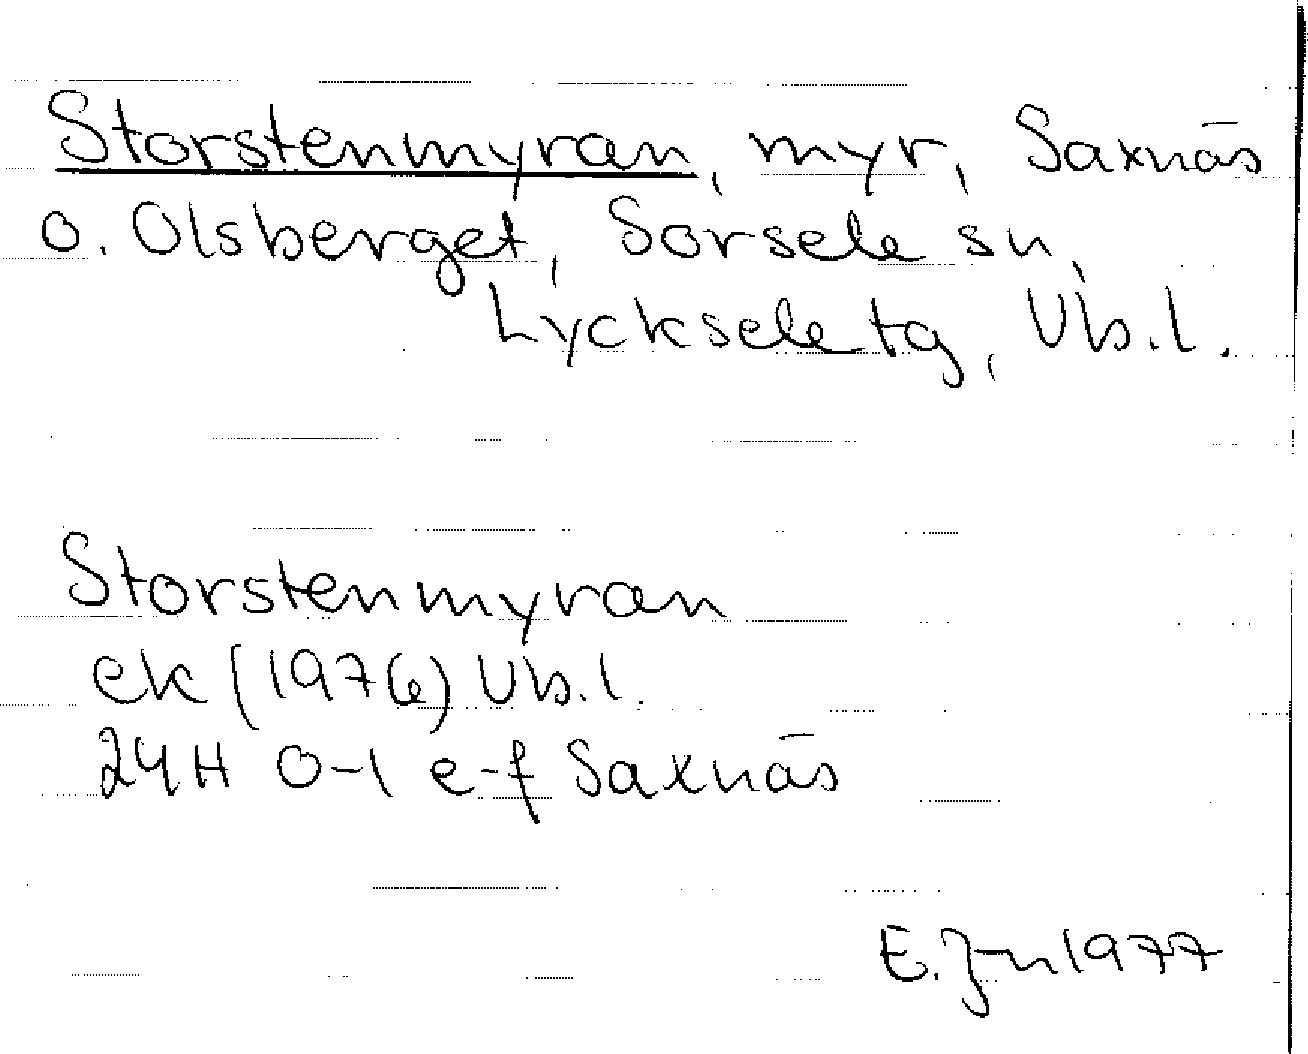 Storstenmyran, myr, Saxnäs
o. Olsberget, Sorsele sn,
Lycksele tg, Vb.l.
Storstenmyran
ek (1976) Vb.l.
24H 0-1 e-f Saxnäs
E. J-n 1977